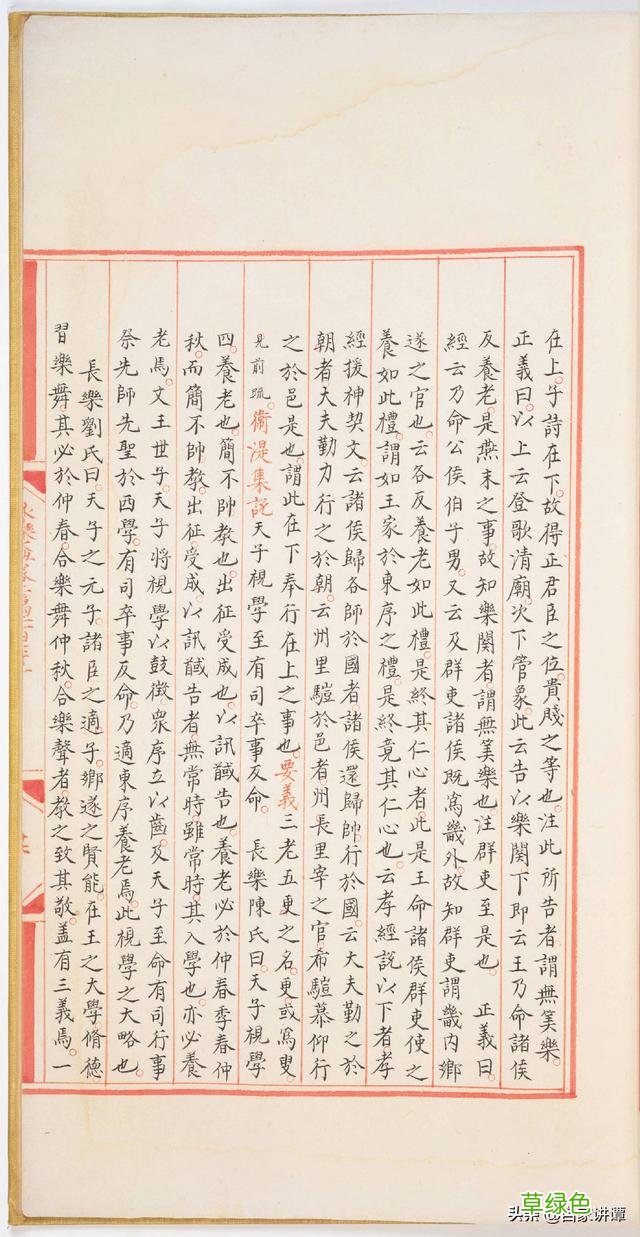 在上子詩在下故得正君臣之位貴賤之等也注此所告者謂無筭樂
正義曰以上云登歌清廟次下管象此云告以樂闋下即云王乃命諸侯
反養老是燕末之事故知樂闋者謂無筭樂也注群吏至是也 正義曰
經云乃命公侯伯子男又云及群吏諸侯既為畿外故知群吏謂畿内鄉
遂之官也云各反養老如此禮是終其仁心者此是王命諸侯群吏使之
養如此禮謂如王家於東序之禮是終竟其仁心也云孝經說以下者孝
經援神契文云諸侯歸各帥於國者諸侯還歸帥行於國云大夫勤之於
朝者大夫勤力行之於朝云州里驩於邑者州長里宰之官希驩慕仰行
之於邑是也謂此在下奉行在上之事也要義三老五更之名更或為叟
見前疏衛湜集說天子視學至有司卒事反命 長樂陳氏曰天子視學
四養老也簡不帥教也出征受成也以訊馘告也養老必於仲春季春仲
秋而簡不帥教出征受成以訊馘告者無常時雖常時其入學也亦必養
老焉文王世子天子將視學以鼓徵衆序立以齒及天子至命有司行事
祭先師先聖於西學有司卒事反命乃適東序養老焉此視學之大略也
長樂劉氏曰天子之元子諸臣之適子鄉遂之賢能在王之大學脩德
習樂舞其必於仲春合樂舞仲秋合樂聲者教之致其敬蓋有三義焉一
草绿色